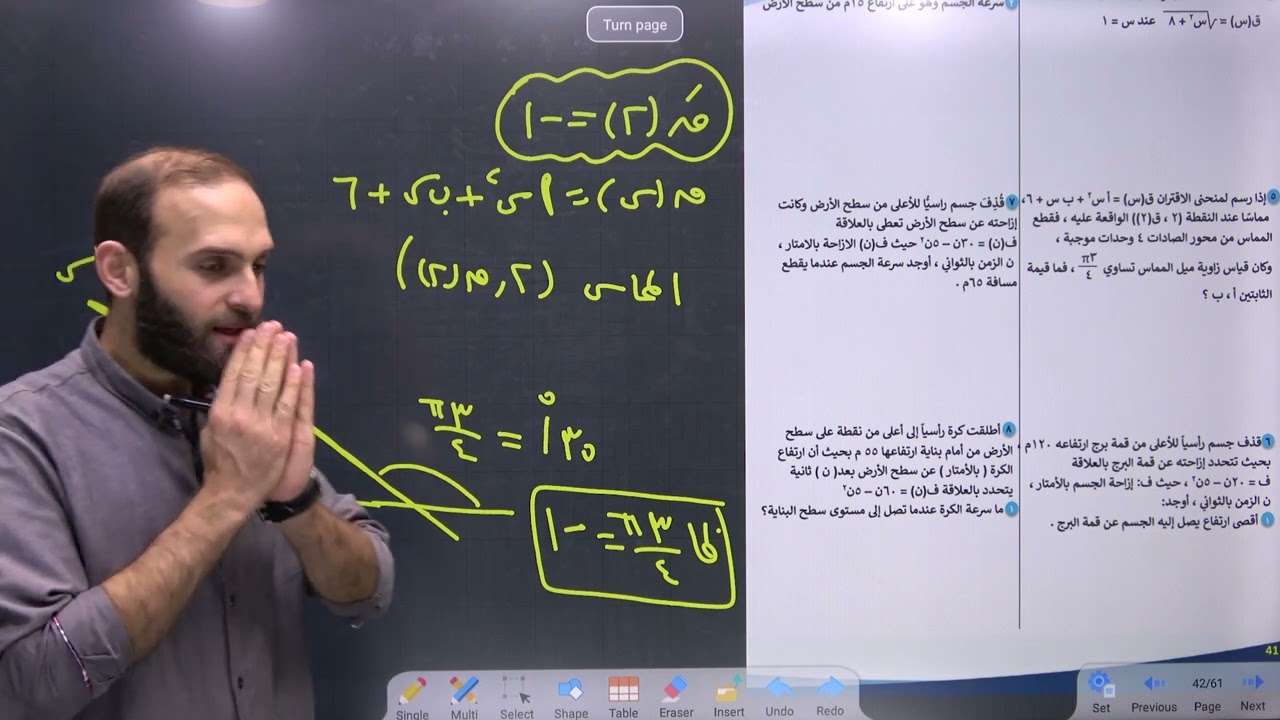 Turn page
قَ(٢) = -١
ق(س) = أس٢ + ب س + ٦
المماس (٢، ق(٢))
٣π/٤ = ١٣٥°
ظا ٣π/٤ = -١
س
ق(س) = √س٢ + ٨ عند س = ١
٥ إذا رسم لمنحنى الاقتران ق(س) = أس٢ + ب س + ٦،
مماسًا عند النقطة (٢ ، ق(٢)) الواقعة عليه ، فقطع
المماس من محور الصادات ٤ وحدات موجبة ،
وكان قياس زاوية ميل المماس تساوي ٣π/٤ ، فما قيمة
الثابتين أ ، ب ؟
٦ قذف جسم رأسياً للأعلى من قمة برج ارتفاعه ١٢٠م ،
بحيث تتحدد إزاحته عن قمة البرج بالعلاقة
ف = ٢٠ن – ٥ن٢ ، حيث ف: إزاحة الجسم بالأمتار ،
ن الزمن بالثواني ، أوجد:
١ أقصى ارتفاع يصل إليه الجسم عن قمة البرج .
سرعة الجسم وهو على ارتفاع ١٥م من سطح الأرض
٧ قُذِفَ جسم راسيًّا للأعلى من سطح الأرض وكانت
إزاحته عن سطح الأرض تعطى بالعلاقة
ف(ن) = ٣٠ن – ٥ن٢ حيث ف(ن) الازاحة بالامتار ،
ن الزمن بالثواني ، أوجد سرعة الجسم عندما يقطع
مسافة ٦٥م .
٨ أطلقت كرة رأسياً إلى أعلى من نقطة على سطح
الأرض من أمام بناية ارتفاعها ٥٥ م بحيث أن ارتفاع
الكرة ( بالأمتار ) عن سطح الأرض بعد( ن ) ثانية
يتحدد بالعلاقة ف(ن) = ٦٠ن – ٥ن٢
١ ما سرعة الكرة عندما تصل إلى مستوى سطح البناية؟
41
Single Multi Select Shape Table Eraser Insert Undo Redo
Set Previous 42/61 Page Next